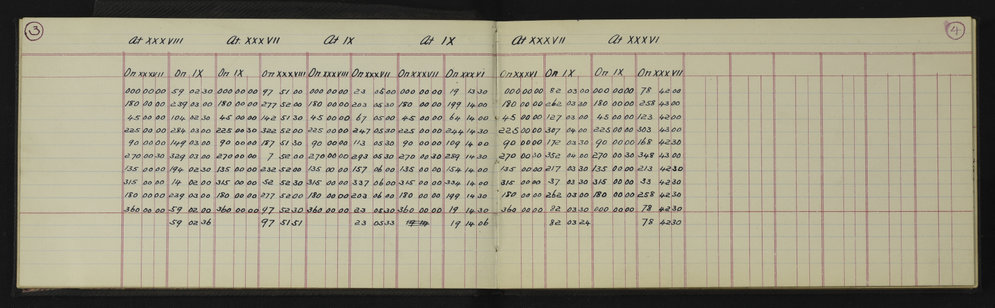 3 4
At XXXVIII At XXXVII At IX At IX At XXXVII At XXXVI
On XXXVII On IX On IX On XXXVIII On XXXVIII On XXXVII On XXXVII On XXXVI On XXXVI On IX On IX On XXXVII
000 00 00 59 02 30 000 00 00 97 51 00 000 00 00 23 05 00 000 00 00 19 13 30 000 00 00 82 03 00 000 00 00 78 42 00
180 00 00 239 03 00 180 00 00 277 52 00 180 00 00 203 05 30 180 00 00 199 14 00 180 00 00 262 03 30 180 00 00 258 43 00
45 00 00 104 02 30 45 00 00 142 51 30 45 00 00 67 05 00 45 00 00 64 14 00 45 00 00 127 03 00 45 00 00 123 42 00
225 00 00 284 03 00 225 00 30 322 52 00 225 00 00 247 05 30 225 00 00 244 14 30 225 00 00 307 04 00 225 00 00 303 43 00
90 00 00 149 03 00 90 00 00 187 51 30 90 00 00 113 05 30 90 00 00 109 14 00 90 00 00 172 03 30 90 00 00 168 42 30
270 00 30 329 03 00 270 00 00 7 52 00 270 00 00 293 05 30 270 00 30 289 14 30 270 00 30 352 04 00 270 00 30 348 43 00
135 00 00 194 02 30 135 00 00 232 52 00 135 00 00 157 06 00 135 00 00 154 14 00 135 00 00 217 03 30 135 00 00 213 42 30
315 00 00 14 02 00 315 00 00 52 52 30 315 00 00 337 06 00 315 00 00 334 14 00 315 00 00 37 03 30 315 00 00 33 42 30
180 00 00 239 03 00 180 00 00 277 52 00 180 00 00 203 06 00 180 00 00 199 14 30 180 00 00 262 03 00 180 00 00 258 42 30
360 00 00 59 02 00 360 00 00 97 52 30 360 00 00 23 05 30 360 00 00 19 14 30 360 00 00 82 03 30 000 00 00 78 42 30
59 02 36 97 51 51 23 05 33 19 14 06 82 03 24 78 42 30